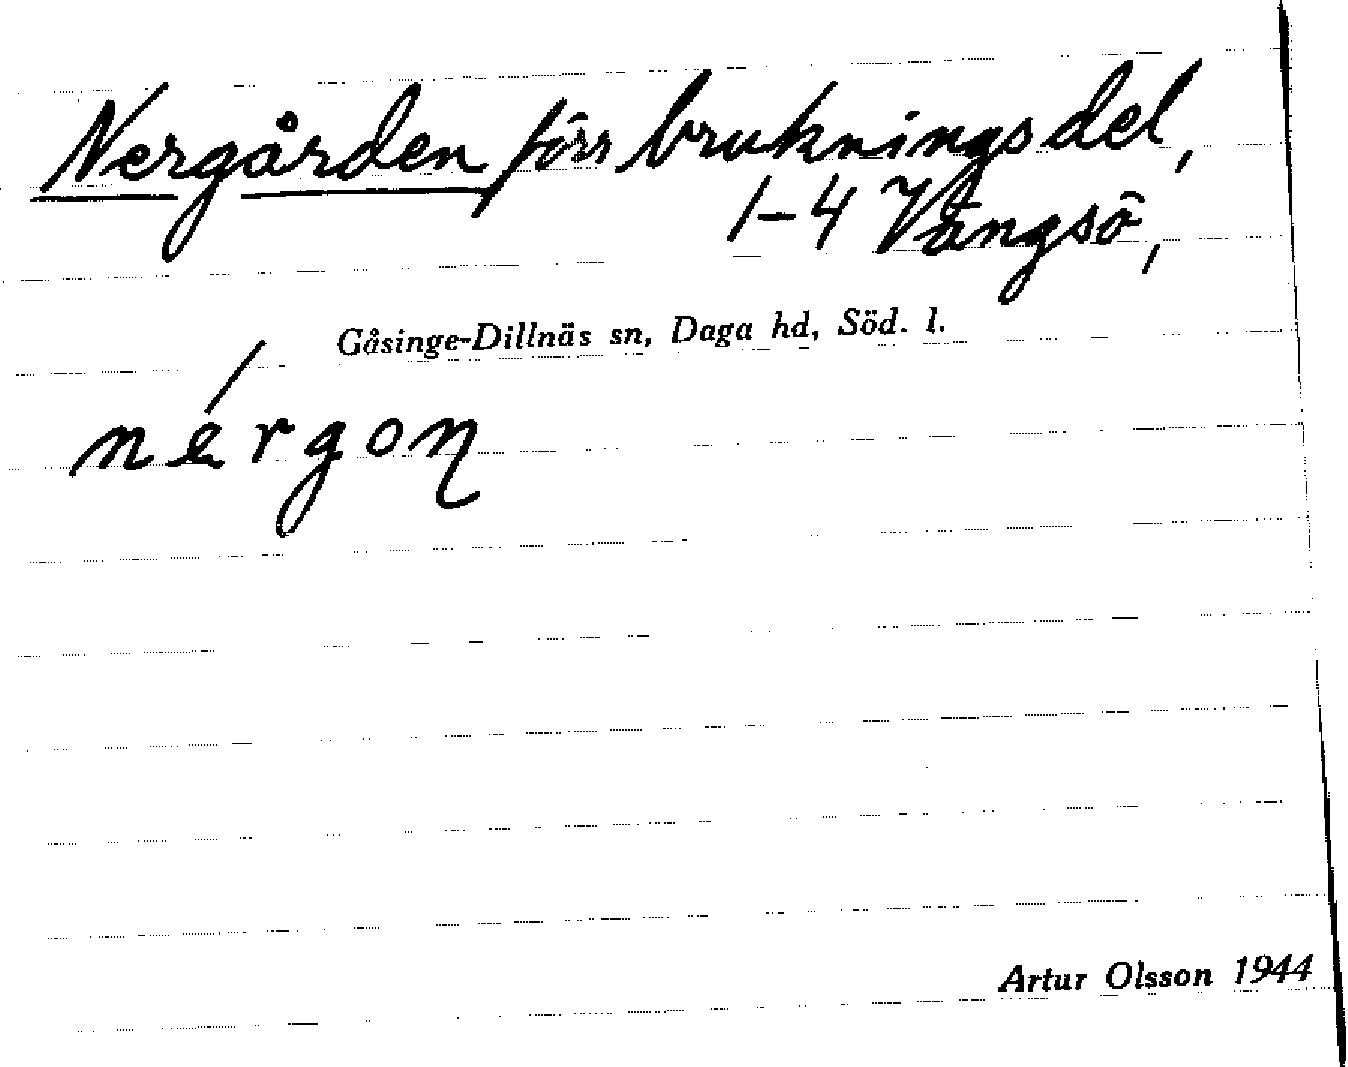 Nergården förr brukningsdel,
1-4 Vängsö,
Gåsinge-Dillnäs sn, Daga hd, Söd. l.
nérgoɳ
Artur Olsson 1944